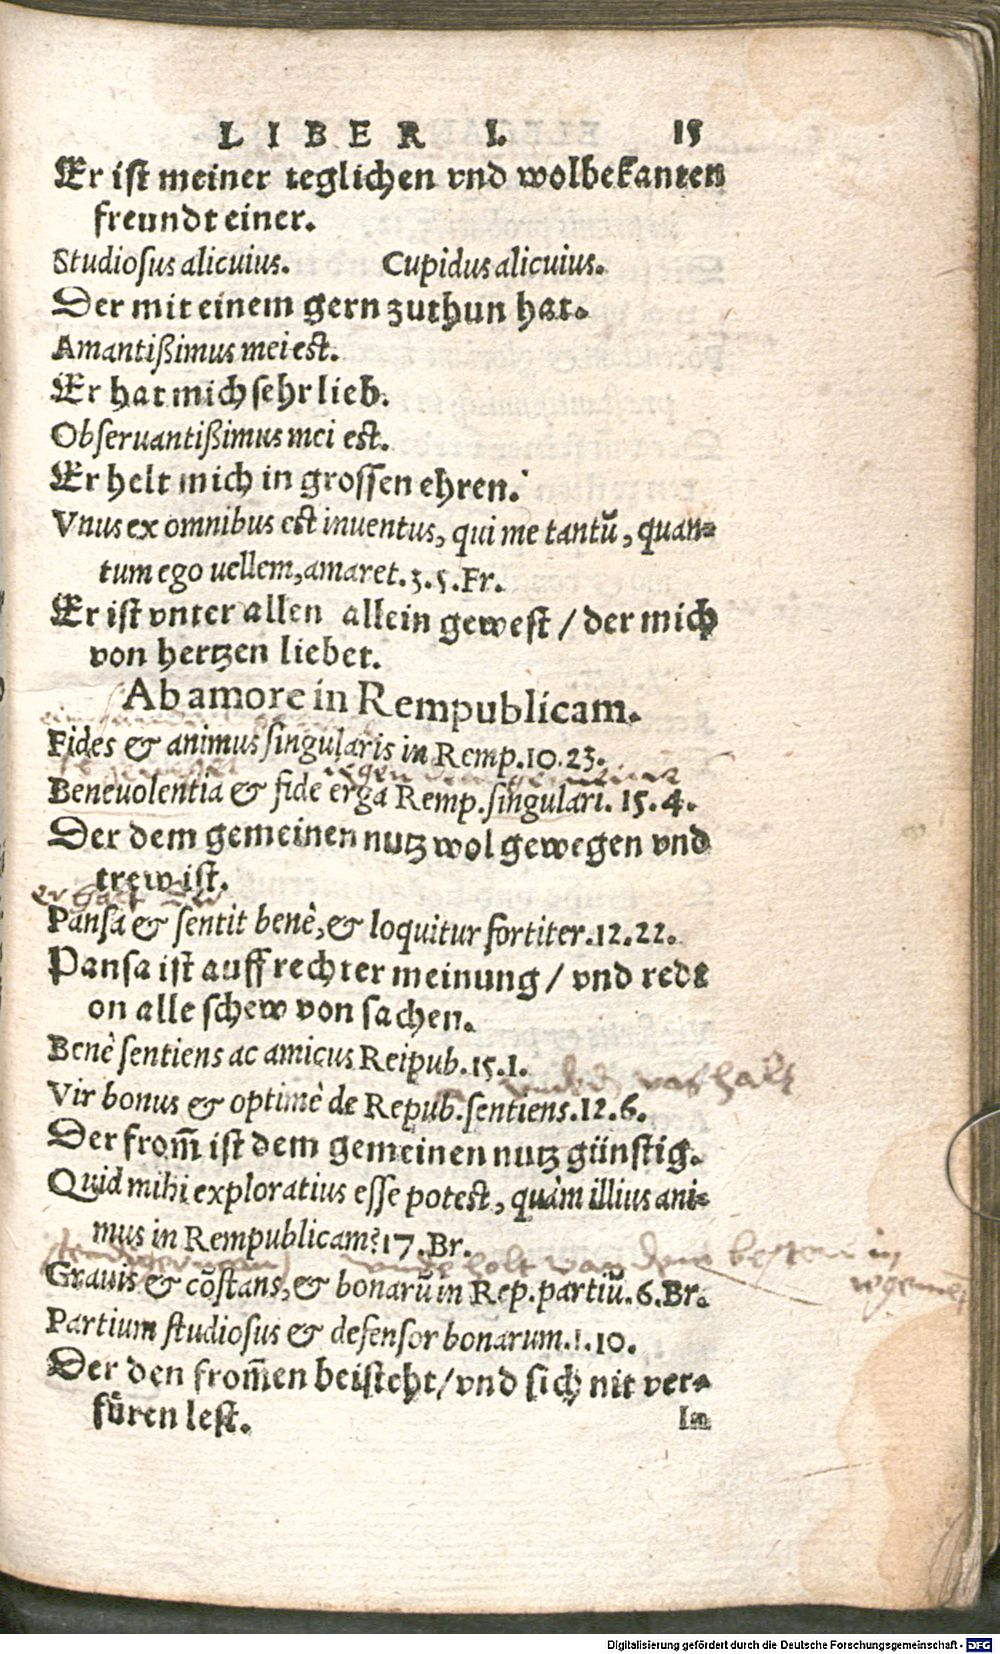 LIBER I. 15
Er ist meiner teglichen vnd wolbekanten
freundt einer.
Studiosus alicuius. Cupidus alicuius.
Der mit einem gern zuthun hat.
Amantißimus mei est.
Er hat mich sehr lieb.
Obseruantißimus mei est.
Er helt mich in grossen ehren.
Vnus ex omnibus est inuentus, qui me tantũ, quan=
tum ego uellem, amaret. 3. 5. Fr.
Er ist vnter allen allein gewest / der mich
von hertzen liebet.
Ab amore in Rempublicam.
Fides & animus singularis in Remp. 10. 23.
Beneuolentia & fide erga Remp. singulari. 15. 4.
Der dem gemeinen nutz wol gewegen vnd
trew ist.
er halt
Pansa & sentit benè, & loquitur fortiter. 12. 22.
Pansa ist auff rechter meinung / vnd redt
on alle schew von sachen.
Benè sentiens ac amicus Reipub. 15. 1.
Vir bonus & optimè de Repub. sentiens. 12. 6.
Der from̃ ist dem gemeinen nutz günstig.
Quid mihi exploratius esse potest, quàm illius ani=
mus in Rempublicam? 17. Br.
Grauis & cõstans, & bonarũ in Rep. partiũ. 6. Br.
Partium studiosus & defensor bonarum. 1. 10.
Der den from̃en beisteht / vnd sich nit ver=
füren lest.
Im
Digitalisierung gefördert durch die Deutsche Forschungsgemeinschaft - DFG